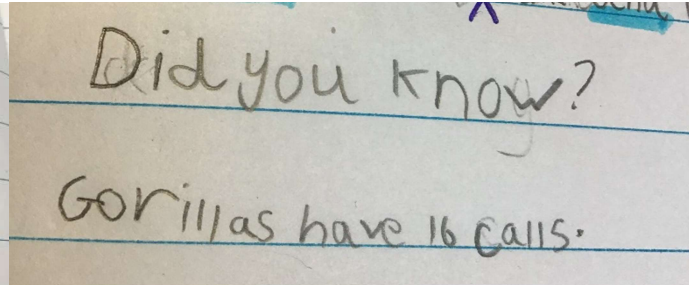 Did you know?
Gorillas have 16 calls.